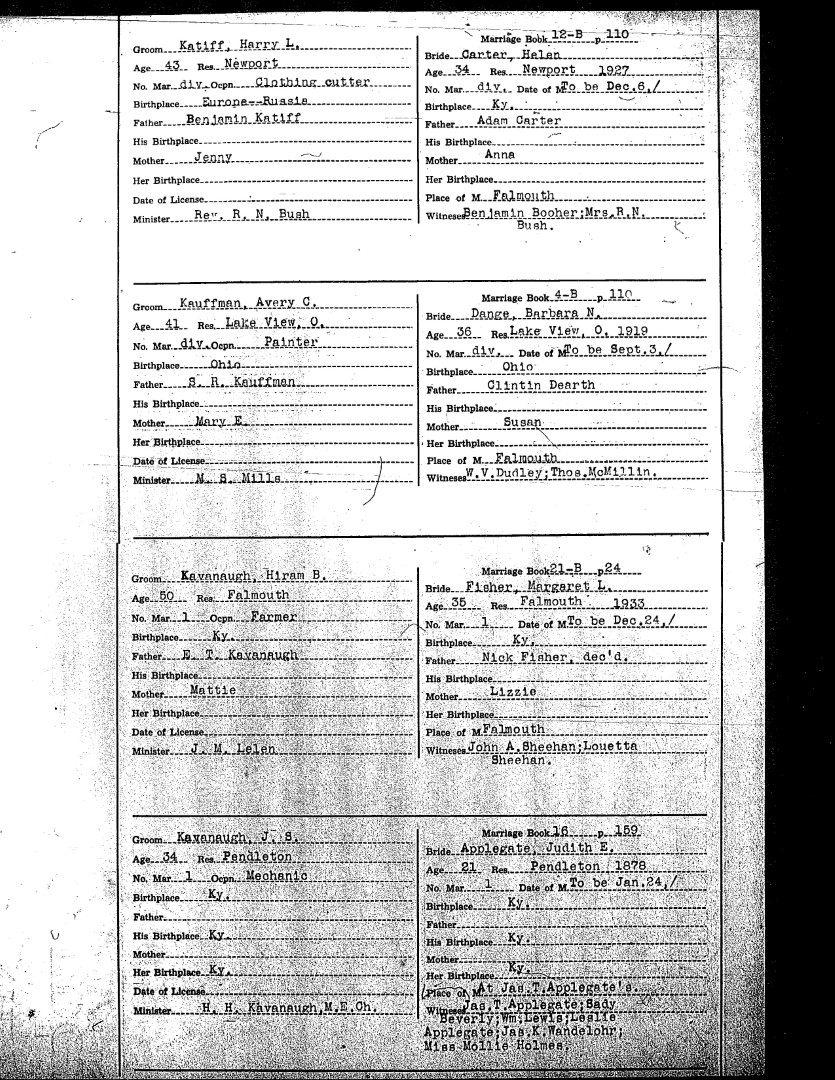 Groom Katiff, Harry L.
Age 43 Res. Newport
No. Mar. div. Ocpn. Clothing cutter
Birthplace Europe--Russia
Father Benjamin Katiff
His Birthplace
Mother Jenny
Her Birthplace
Date of License
Minister Rev. R. N. Bush
Marriage Book 12-B p. 110
Bride Carter, Helen
Age 34 Res. Newport 1927
No. Mar. div. Date of M. To be Dec.6,/
Birthplace Ky.
Father Adam Carter
His Birthplace
Mother Anna
Her Birthplace
Place of M. Falmouth
Witnesses Benjamin Booher;Mrs.R.N.
Bush.
Groom Kauffman, Avery C.
Age 41 Res. Lake View, O.
No. Mar. div. Ocpn. Painter
Birthplace Ohio
Father S. R. Kauffman
His Birthplace
Mother Mary E.
Her Birthplace
Date of License
Minister M. S. Mills
Marriage Book 4-B p. 110
Bride Dange, Barbara N.
Age 36 Res. Lake View, O. 1919
No. Mar. div. Date of M. To be Sept.3,/
Birthplace Ohio
Father Clintin Dearth
His Birthplace
Mother Susan
Her Birthplace
Place of M. Falmouth
Witnesses W.V.Dudley;Thos.McMillin.
Groom Kavanaugh, Hiram B.
Age 50 Res. Falmouth
No. Mar. 1 Ocpn. Farmer
Birthplace Ky.
Father E. T. Kavanaugh
His Birthplace
Mother Mattie
Her Birthplace
Date of License
Minister J. M. Lelen
Marriage Book 21-B p. 24
Bride Fisher, Margaret L.
Age 35 Res. Falmouth 1933
No. Mar. 1 Date of M. To be Dec.24,/
Birthplace Ky.
Father Nick Fisher, dec'd.
His Birthplace
Mother Lizzie
Her Birthplace
Place of M. Falmouth
Witnesses John A.Sheehan;Louetta
Sheehan.
Groom Kavanaugh, J. S.
Age 34 Res. Pendleton
No. Mar. 1 Ocpn. Mechanic
Birthplace Ky.
Father
His Birthplace Ky.
Mother
Her Birthplace Ky.
Date of License
Minister H. H. Kavanaugh,M.E.Ch.
Marriage Book 16 p. 159
Bride Applegate, Judith E.
Age 21 Res. Pendleton 1878
No. Mar. 1 Date of M. To be Jan.24,/
Birthplace Ky.
Father
His Birthplace Ky.
Mother
Her Birthplace Ky.
Place of M. At Jas.T.Applegate's.
Witnesses Jas.T.Applegate;Sady
Beverly;Wm.Lewis;Leslie
Applegate;Jas.K.Wandelohr;
Miss Mollie Holmes.